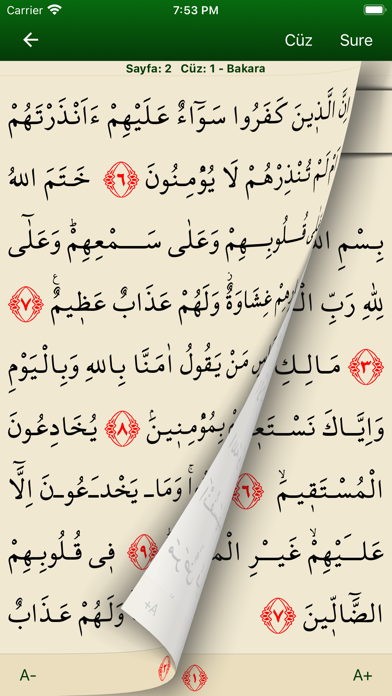 Carrier 7:53 PM
Cüz Sure
Sayfa: 2 Cüz: 1 - Bakara
اِنَّ الَّذ۪ينَ كَفَرُوا سَوَٓاءٌ عَلَيْهِمْ ءَاَنْذَرْتَهُمْ
اَمْ لَمْ تُنْذِرْهُمْ لَا يُؤْمِنُونَ ٦ خَتَمَ اللهُ
بِسْمِ قُلُوبِهِمْ وَعَلٰى سَمْعِهِمْۜ وَعَلٰٓى
لِلّٰهِ رَبِّ غِشَاوَةٌۘ وَلَهُمْ عَذَابٌ عَظ۪يمٌ۟ ٧
٣ مَالِكِ مَنْ يَقُولُ اٰمَنَّا بِاللهِ وَبِالْيَوْمِ
وَاِيَّاكَ بِمُؤْمِن۪ينَۢ ٨ يُخَادِعُونَ
الْمُسْتَق۪يمَۙ ٦ وَمَا يَخْدَعُونَ اِلَّٓا
عَلَيْهِمْۙ غَيْرِ ٩ ف۪ي قُلُوبِهِمْ
الضَّٓالّ۪ينَ ٧ وَلَهُمْ عَذَابٌ
A- ٢ ١ A+